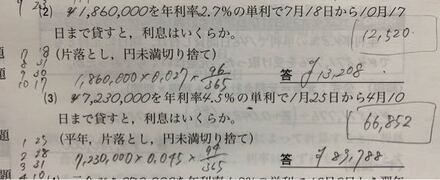 (2) ¥1,860,000を年利率2.7%の単利で7月18日から10月17
日まで貸すと、利息はいくらか。
12,520
(片落とし，円未満切り捨て)
1,860,000×0.027×96/365
答 ¥13,208
(3) ¥7,230,000を年利率4.5%の単利で1月25日から4月10
日まで貸すと、利息はいくらか。
66,852
(平年，片落とし，円未満切り捨て)
7,230,000×0.045×94/365
答 ¥83,788
7 18
8 31
9 30
10 17
1 25
2 28
3 31
4 10
題
題